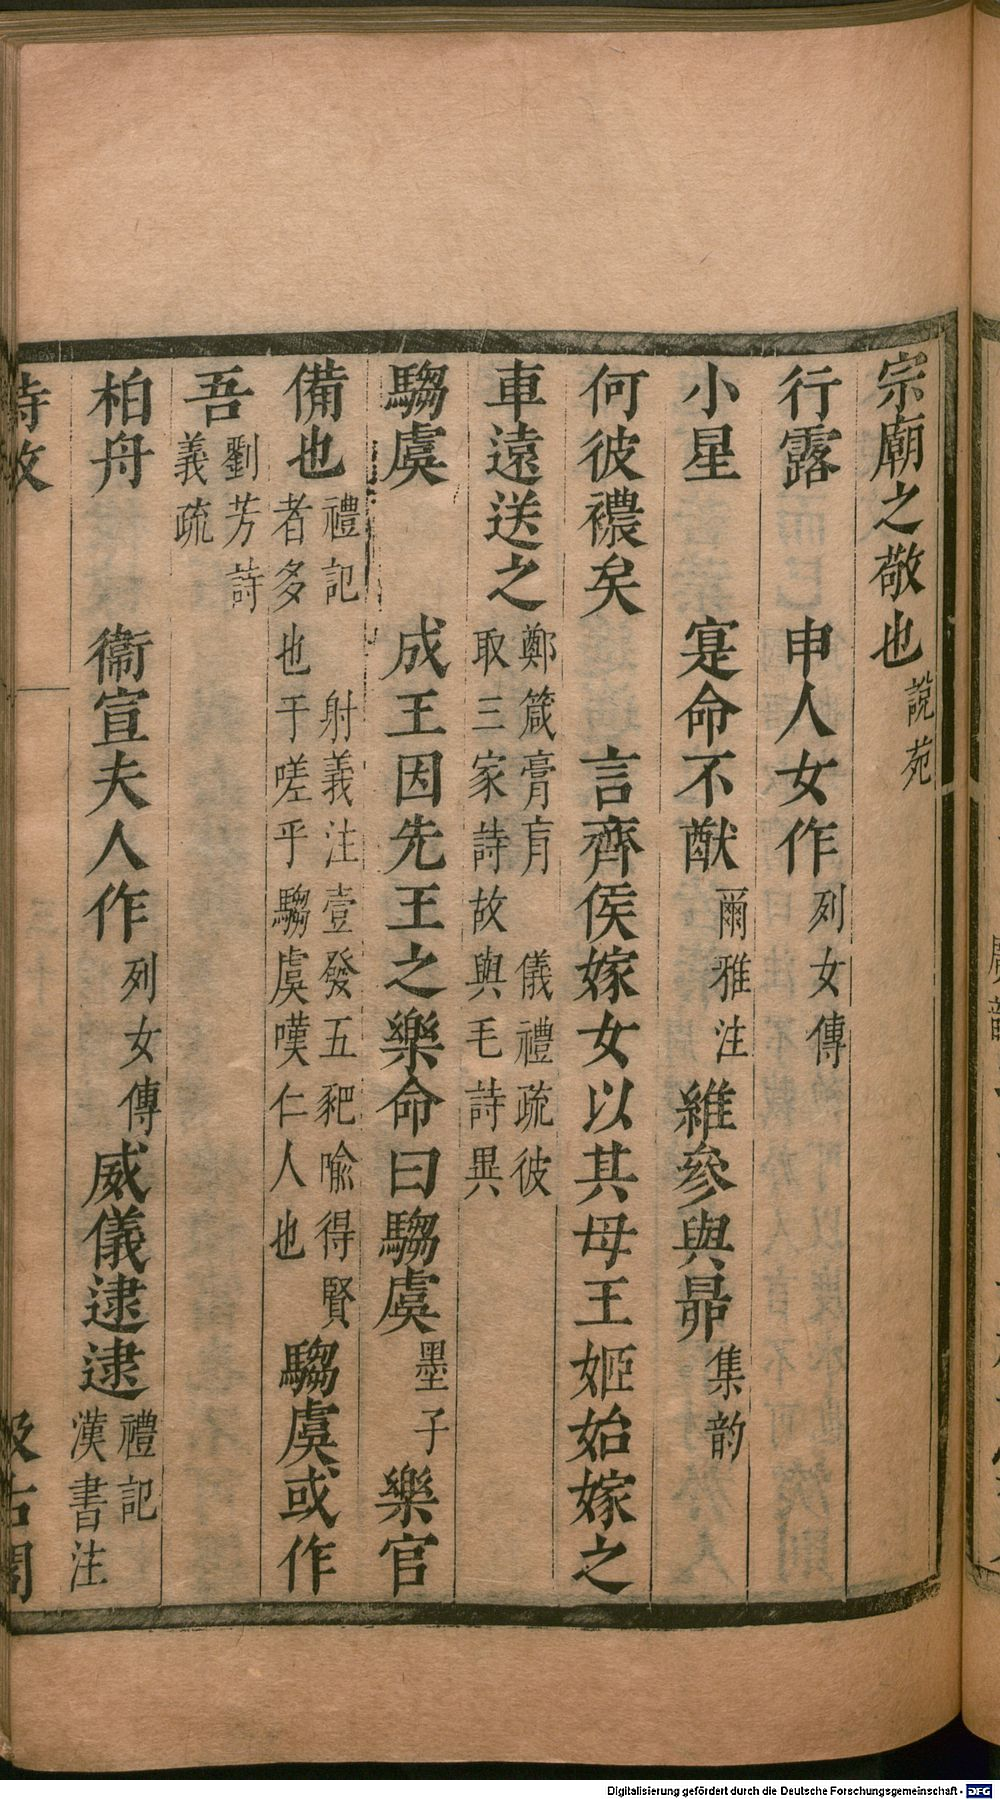 宗廟之敬也說苑
行露　申人女作列女傳
小星　寔命不猷爾雅注維參與昴集韵
何彼襛矣　言齊侯嫁女以其母王姬始嫁之
車遠送之鄭箴膏肓　儀禮疏彼取三家詩故與毛詩異
騶虞　成王因先王之樂命曰騶虞墨子樂官
備也禮記　射義注壹發五豝喻得賢者多也于嗟乎騶虞嘆仁人也騶虞或作
吾劉芳詩義疏
柏舟　衞宣夫人作列女傳威儀逮逮禮記漢書注
詩攷　汲古閣
Digitalisierung gefördert durch die Deutsche Forschungsgemeinschaft - DFG